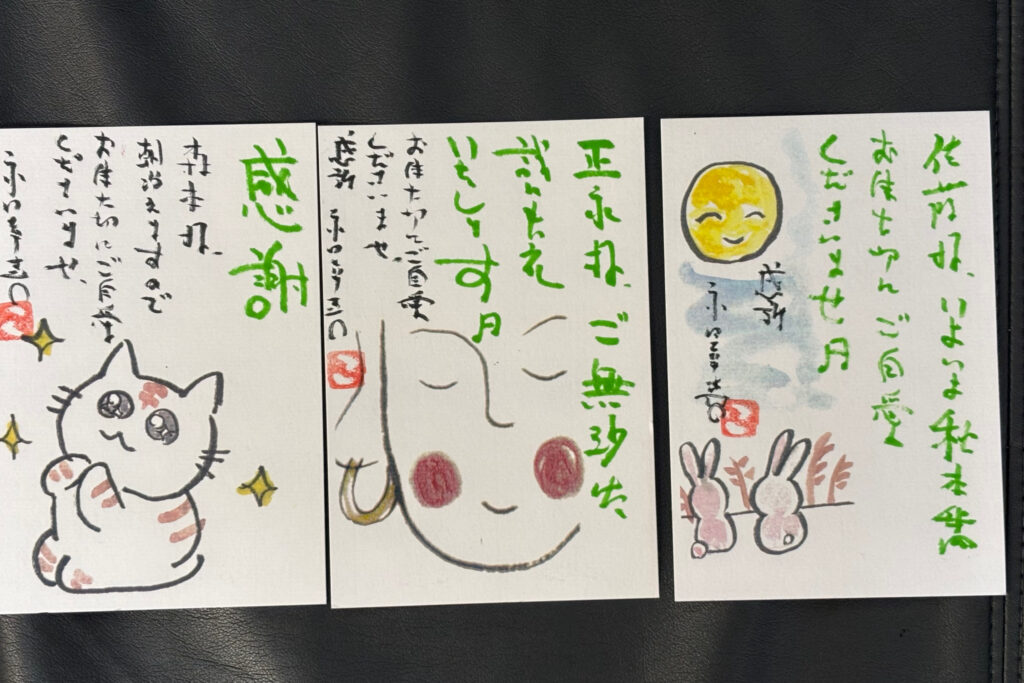 佐藤様、いよいよ秋本番
お体大切にご自愛
くださいませ。
感謝
正永様、ご無沙汰
いたします。
お体大切にご自愛
くださいませ。
感謝
感謝。
森本様、
朝冷えますので
お体大切にご自愛
くださいませ。